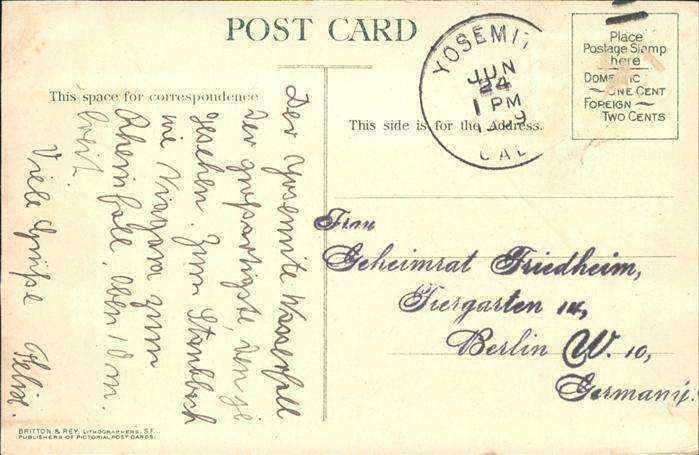 POST CARD
This space for correspondence
This side is for the Address.
YOSEMIT
JUN
24
1 PM
CAL
Place
Postage Stamp
here
DOMESTIC
ONE CENT
FOREIGN
TWO CENTS
Der Yosemite Wasserfall
der großartigste, den je
gesehen. Zum Staubbach
wie Niagara zum
Rheinfall, oben 10 m.
breit
Viele Grüße Felix.
Frau
Geheimrat Friedheim,
Tiergarten 14,
Berlin W. 10,
Germany.
BRITTON & REY, LITHOGRAPHERS, S.F.
PUBLISHERS OF PICTORIAL POST CARDS.